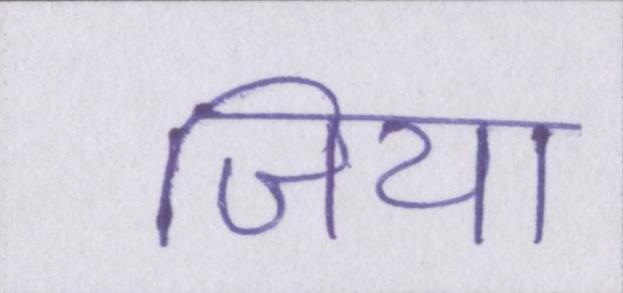 जिया